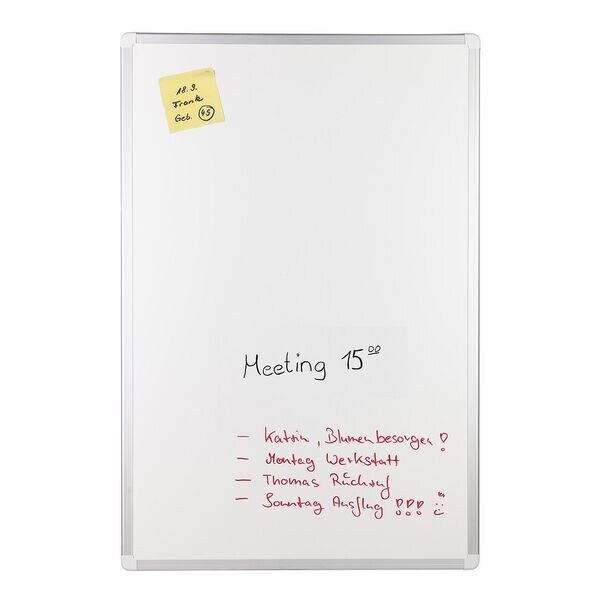 18.9.
Frank
Geb. 45
Meeting 15⁰⁰
– Katrin, Blumen besorgen!
– Montag Werkstatt
– Thomas Rückruf
– Sonntag Ausflug !!! :)